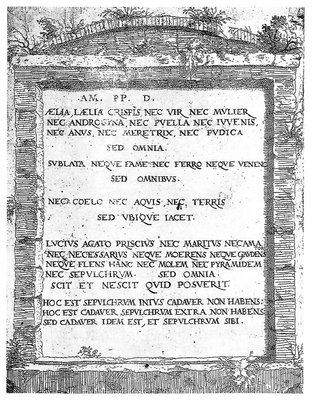 AM. PP. D.
ÆLIA LÆLIA CRISPIS, NEC VIR NEC MULIER
NEC ANDROGYNA, NEC PUELLA NEC IUVENIS,
NEC ANUS, NEC MERETRIX, NEC PUDICA
SED OMNIA.
SUBLATA NEQUE FAME NEC FERRO NEQUE VENENO
SED OMNIBUS.
NEC COELO NEC AQUIS NEC TERRIS
SED UBIQUE IACET.
LUCIUS AGATO PRISCIUS NEC MARITUS NEC AMA
NEC NECESSARIUS NEQUE MOERENS NEQUE GAUDENS
NEQUE FLENS HANC NEC MOLEM NEC PYRAMIDEM
NEC SEPULCHRUM. SED OMNIA.
SCIT ET NESCIT QUID POSUERIT.
HOC EST SEPULCHRUM INTUS CADAVER NON HABENS.
HOC EST CADAVER SEPULCHRUM EXTRA NON HABENS
SED CADAVER IDEM EST, ET SEPULCHRUM SIBI.